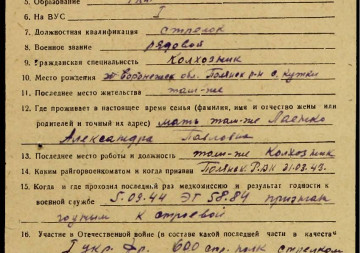 5. Образование
6. На ВУС I
7. Должностная квалификация стрелок
8. Военное звание рядовой
9. Гражданская специальность Колхозник
10. Место рождения Воронежск обл. р-н с.
11. Последнее место жительства там-же
12. Где проживает в настоящее время семья (фамилия, имя и отчество жены или
родителей и точный на адрес) мать там-же
Александра Павловна
13. Последнее место работы и должность там-же Колхозник
14. Каким райгорвоенкоматом и когда призван РВК 21.03.43.
15. Когда и где проходил последний раз медкомиссию и результат годности к
военной службе 5.09.44 ЭГ 58.84 признан
годным к строевой
16. Участие в Отечественной войне (в составе какой последней части и в качестве
I укр. фр. 600 стр. полк стрелком